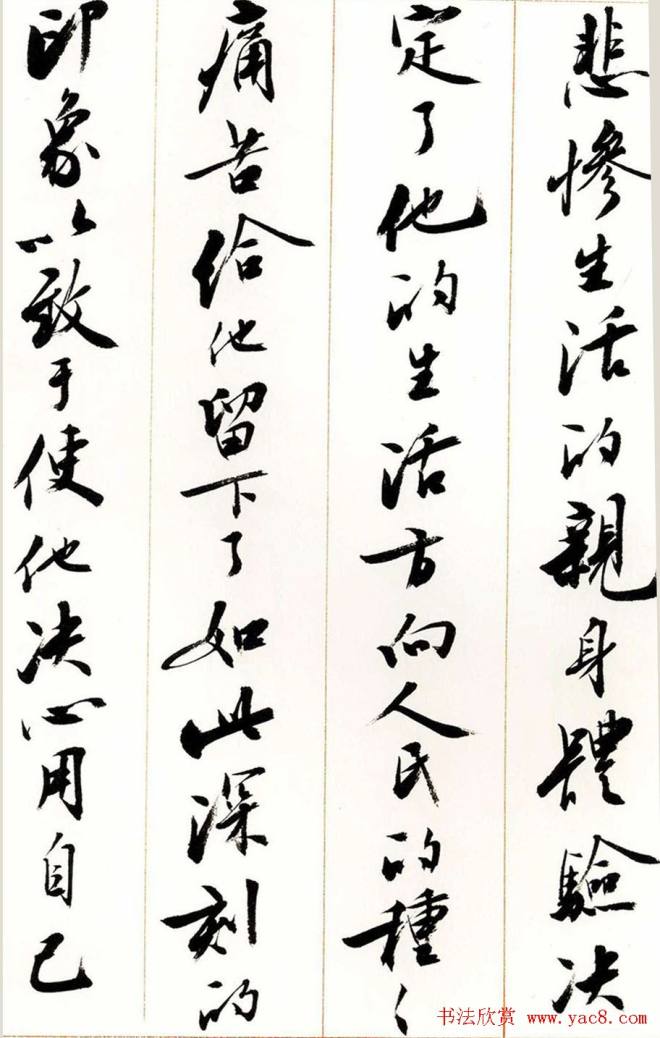 悲慘生活的親身體驗决
定了他的生活方向人民的種〻
痛苦給他留下了如此深刻的
印象以致于使他决心用自己
书法欣赏 www.yac8.com